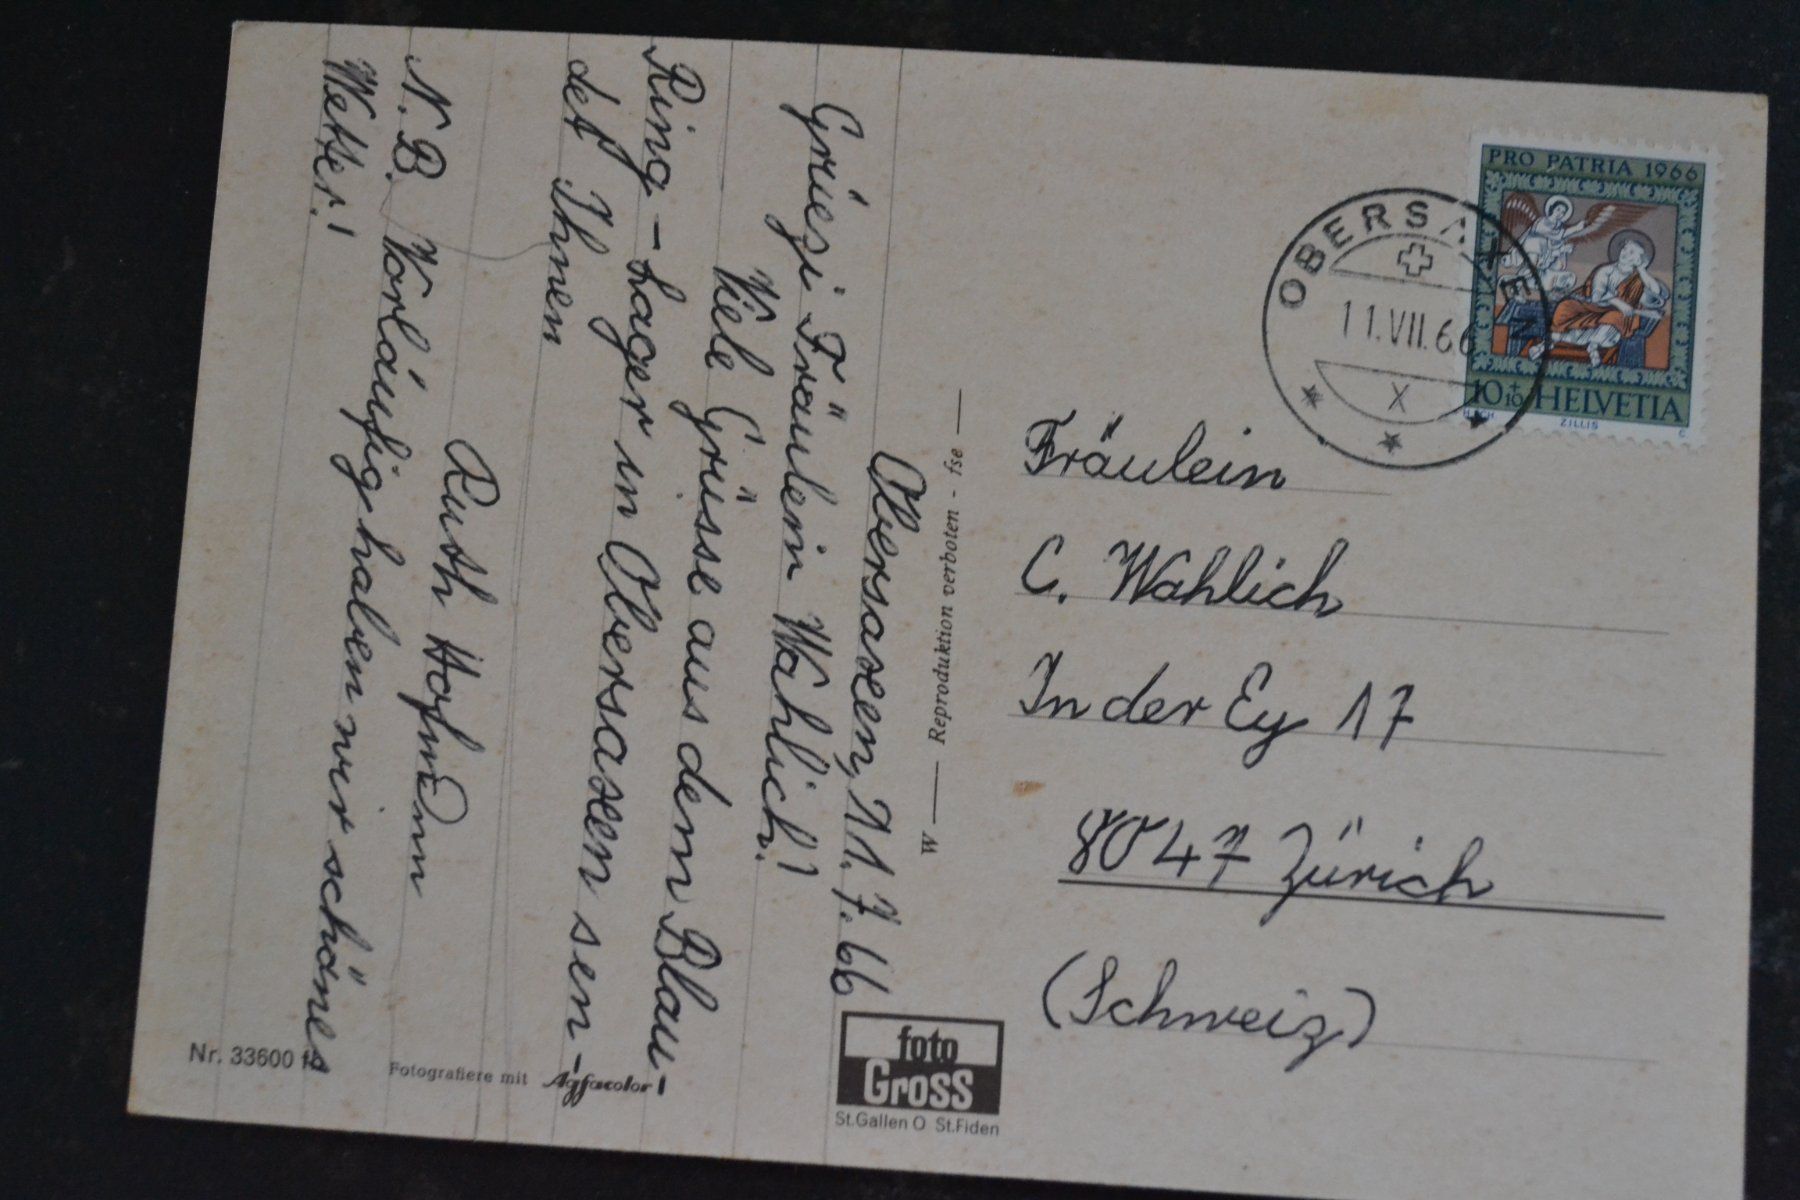 Obersaxen, 11.7.66
Grüezi Fräulein Wahlich!
Viele Grüsse aus dem Blau-
Ring-Lager in Obersaxen sen-
det Ihnen
Ruth Hofmann
N.B. Vorläufig haben wir schönes
Wetter!
W — Reproduktion verboten - fse —
PRO PATRIA 1966
10+10 HELVETIA
ZILLIS
OBERSAXEN
11.VII.66
X
Fräulein
C. Wahlich
In der Ey 17
8047 Zürich
(Schweiz)
foto
Gross
St.Gallen O St.Fiden
Nr. 33600
Fotografiere mit Agfacolor